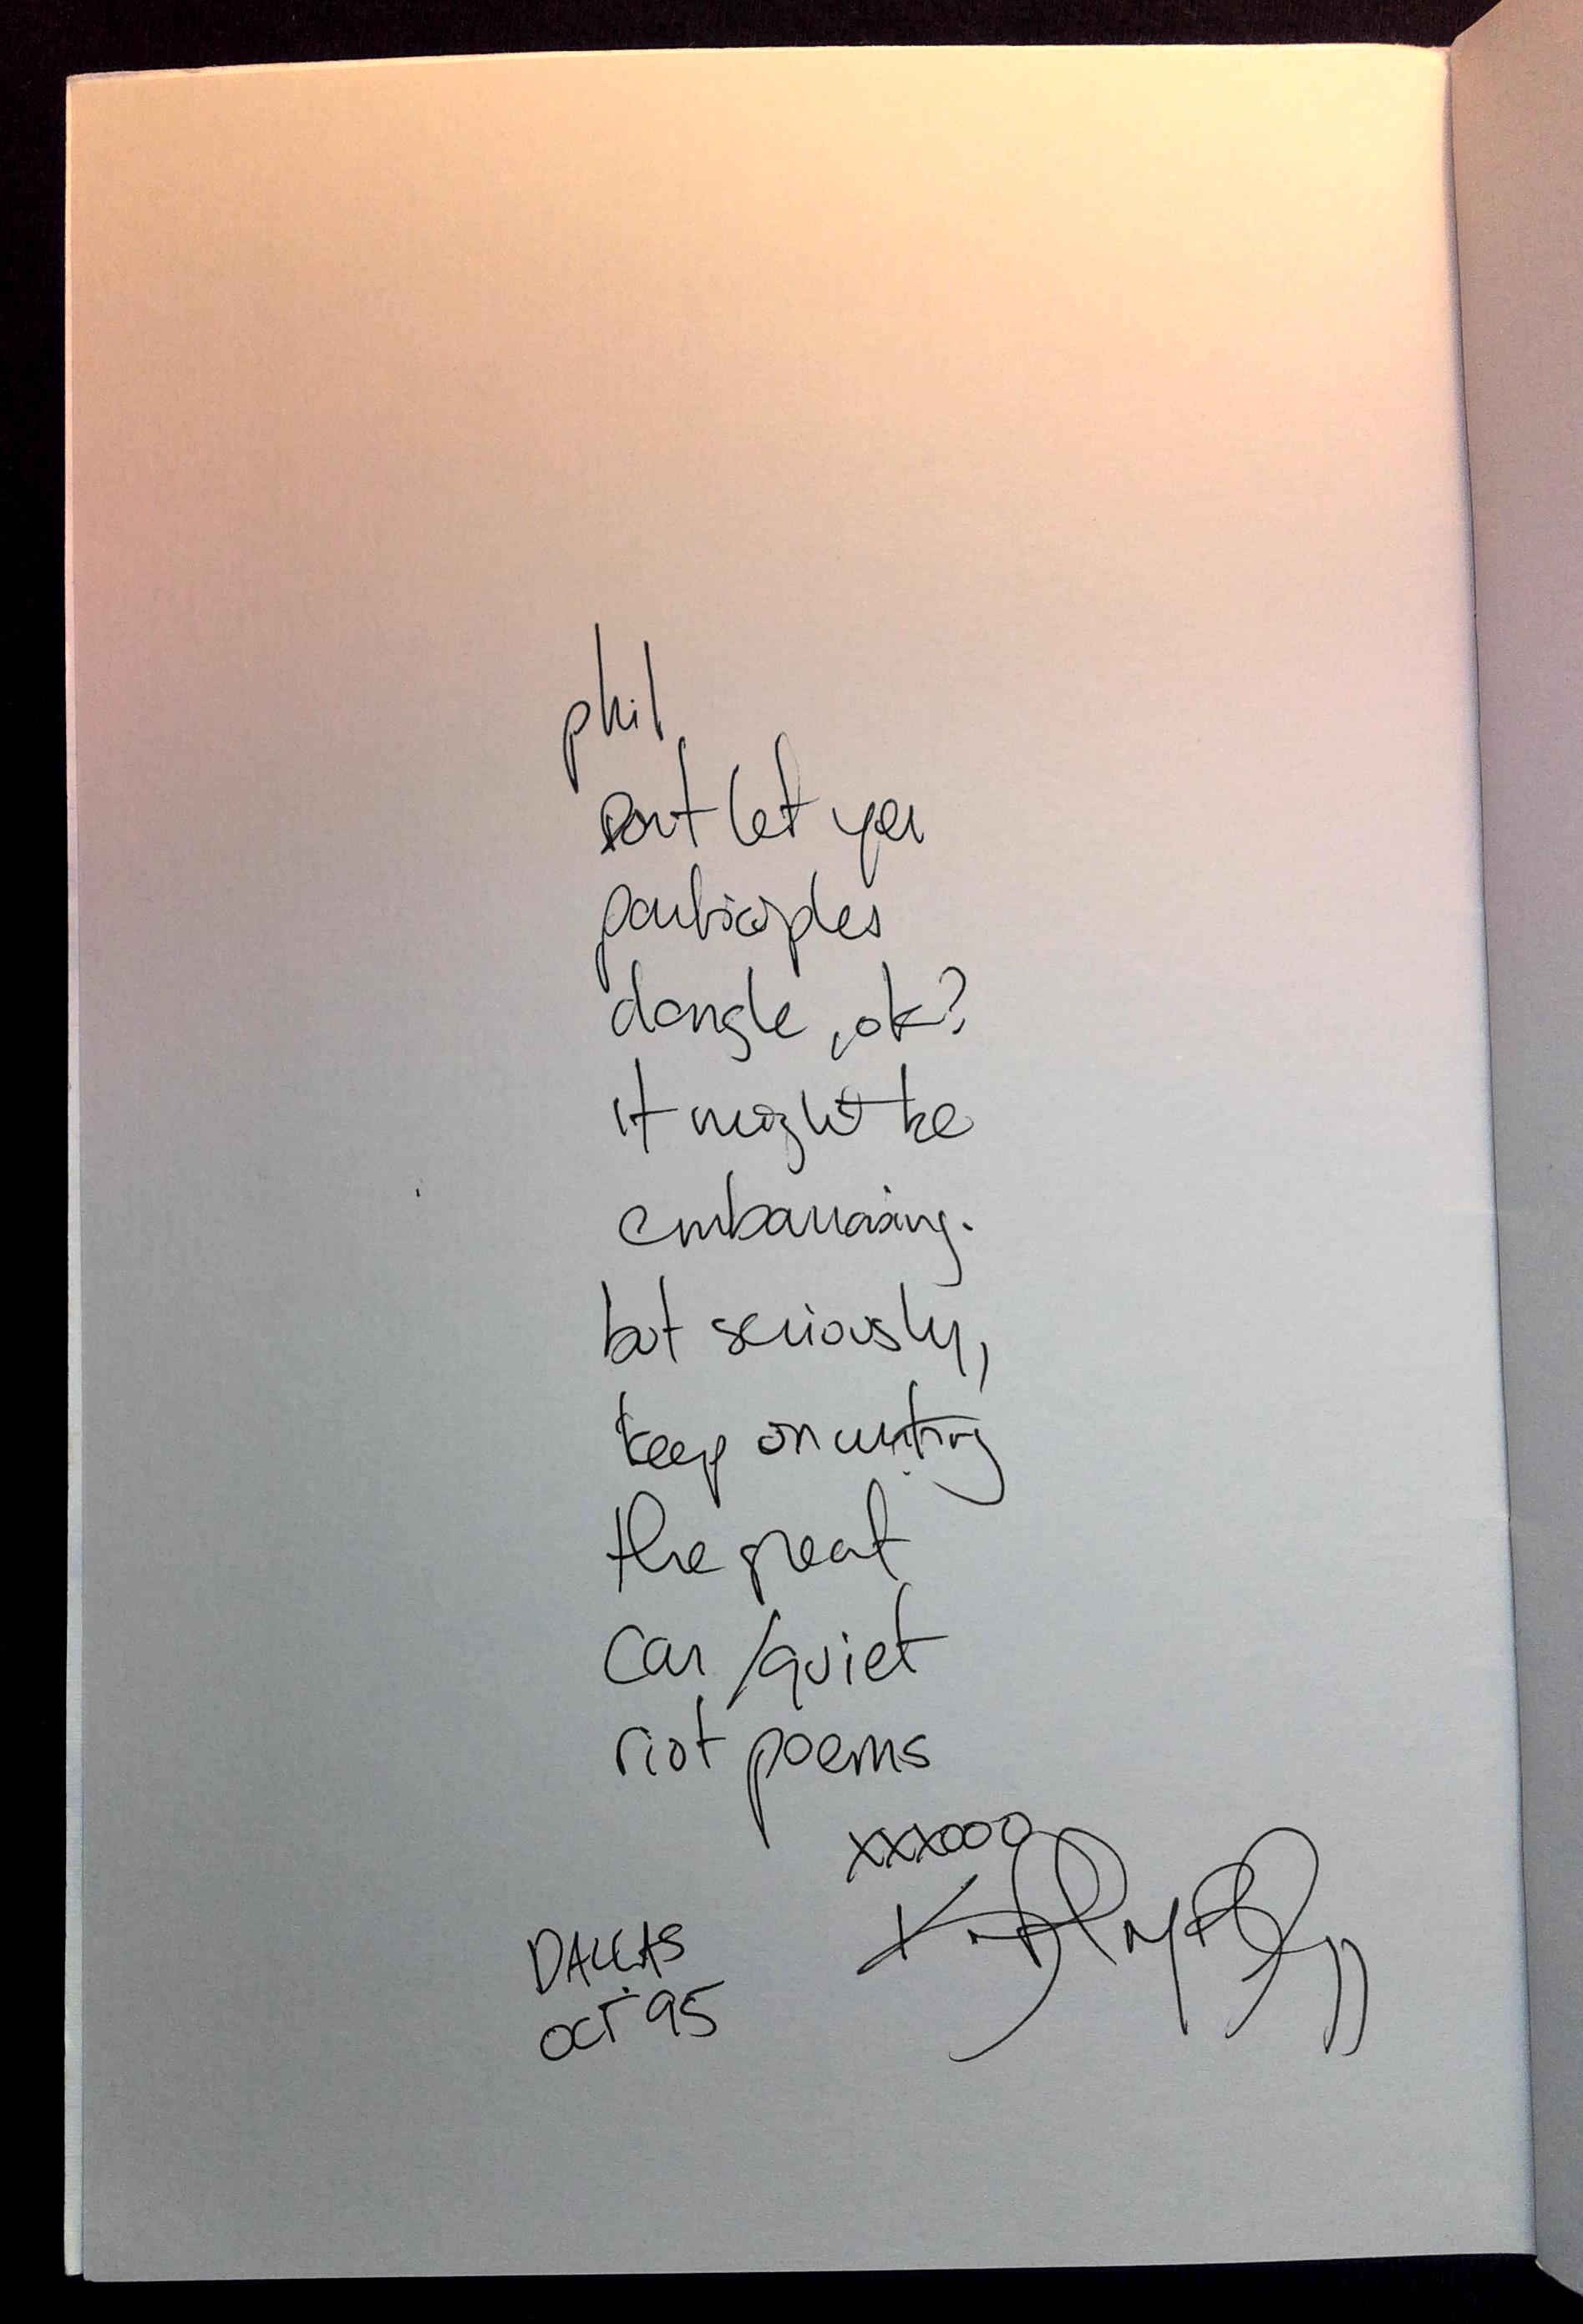 phil
Dont let yer
participles
dangle, ok?
it might be
embarrasing.
but seriously,
keep on writing
the great
car/quiet
riot poems
xxxooo
DALLAS
OCT 95